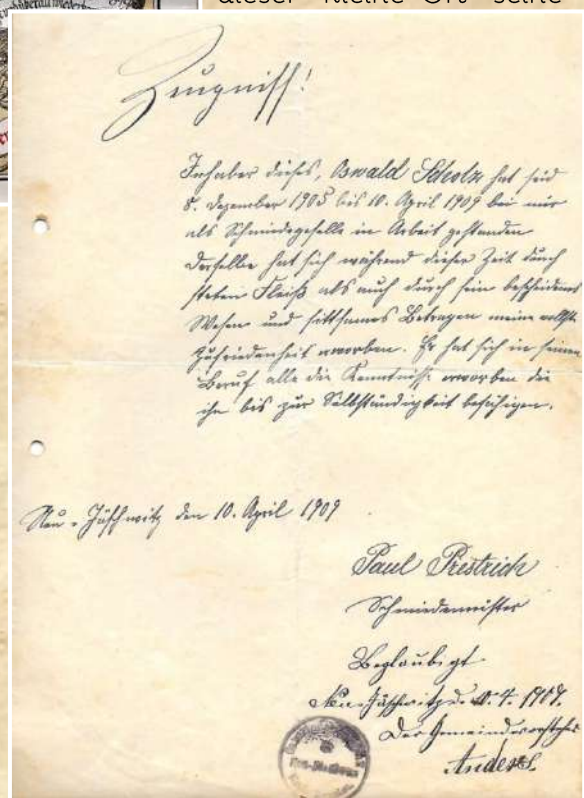 dieser kleine Ort seine
Zeugniss!
Inhaber dieses, Oswald Scholz hat seid
8. Dezember 1905 bis 10. April 1909 bei mir
als Schmiedegeselle in Arbeit gestanden
Derselbe hat sich während dieser Zeit durch
steten Fleiß als auch durch sein bescheidenes
Wesen und sittsames Betragen meine vollste
Zufriedenheit erworben. Er hat sich in seinem
Beruf alle die Kenntnisse erworben die
ihn bis zur Selbständigkeit befähigen.
Neu-Jäschwitz den 10. April 1909
Paul Pristrich
Schmiedemeister
Beglaubigt
Neu-Jäschwitz d. 10. 4. 1909.
Der Gemeindevorsteher
Anders.